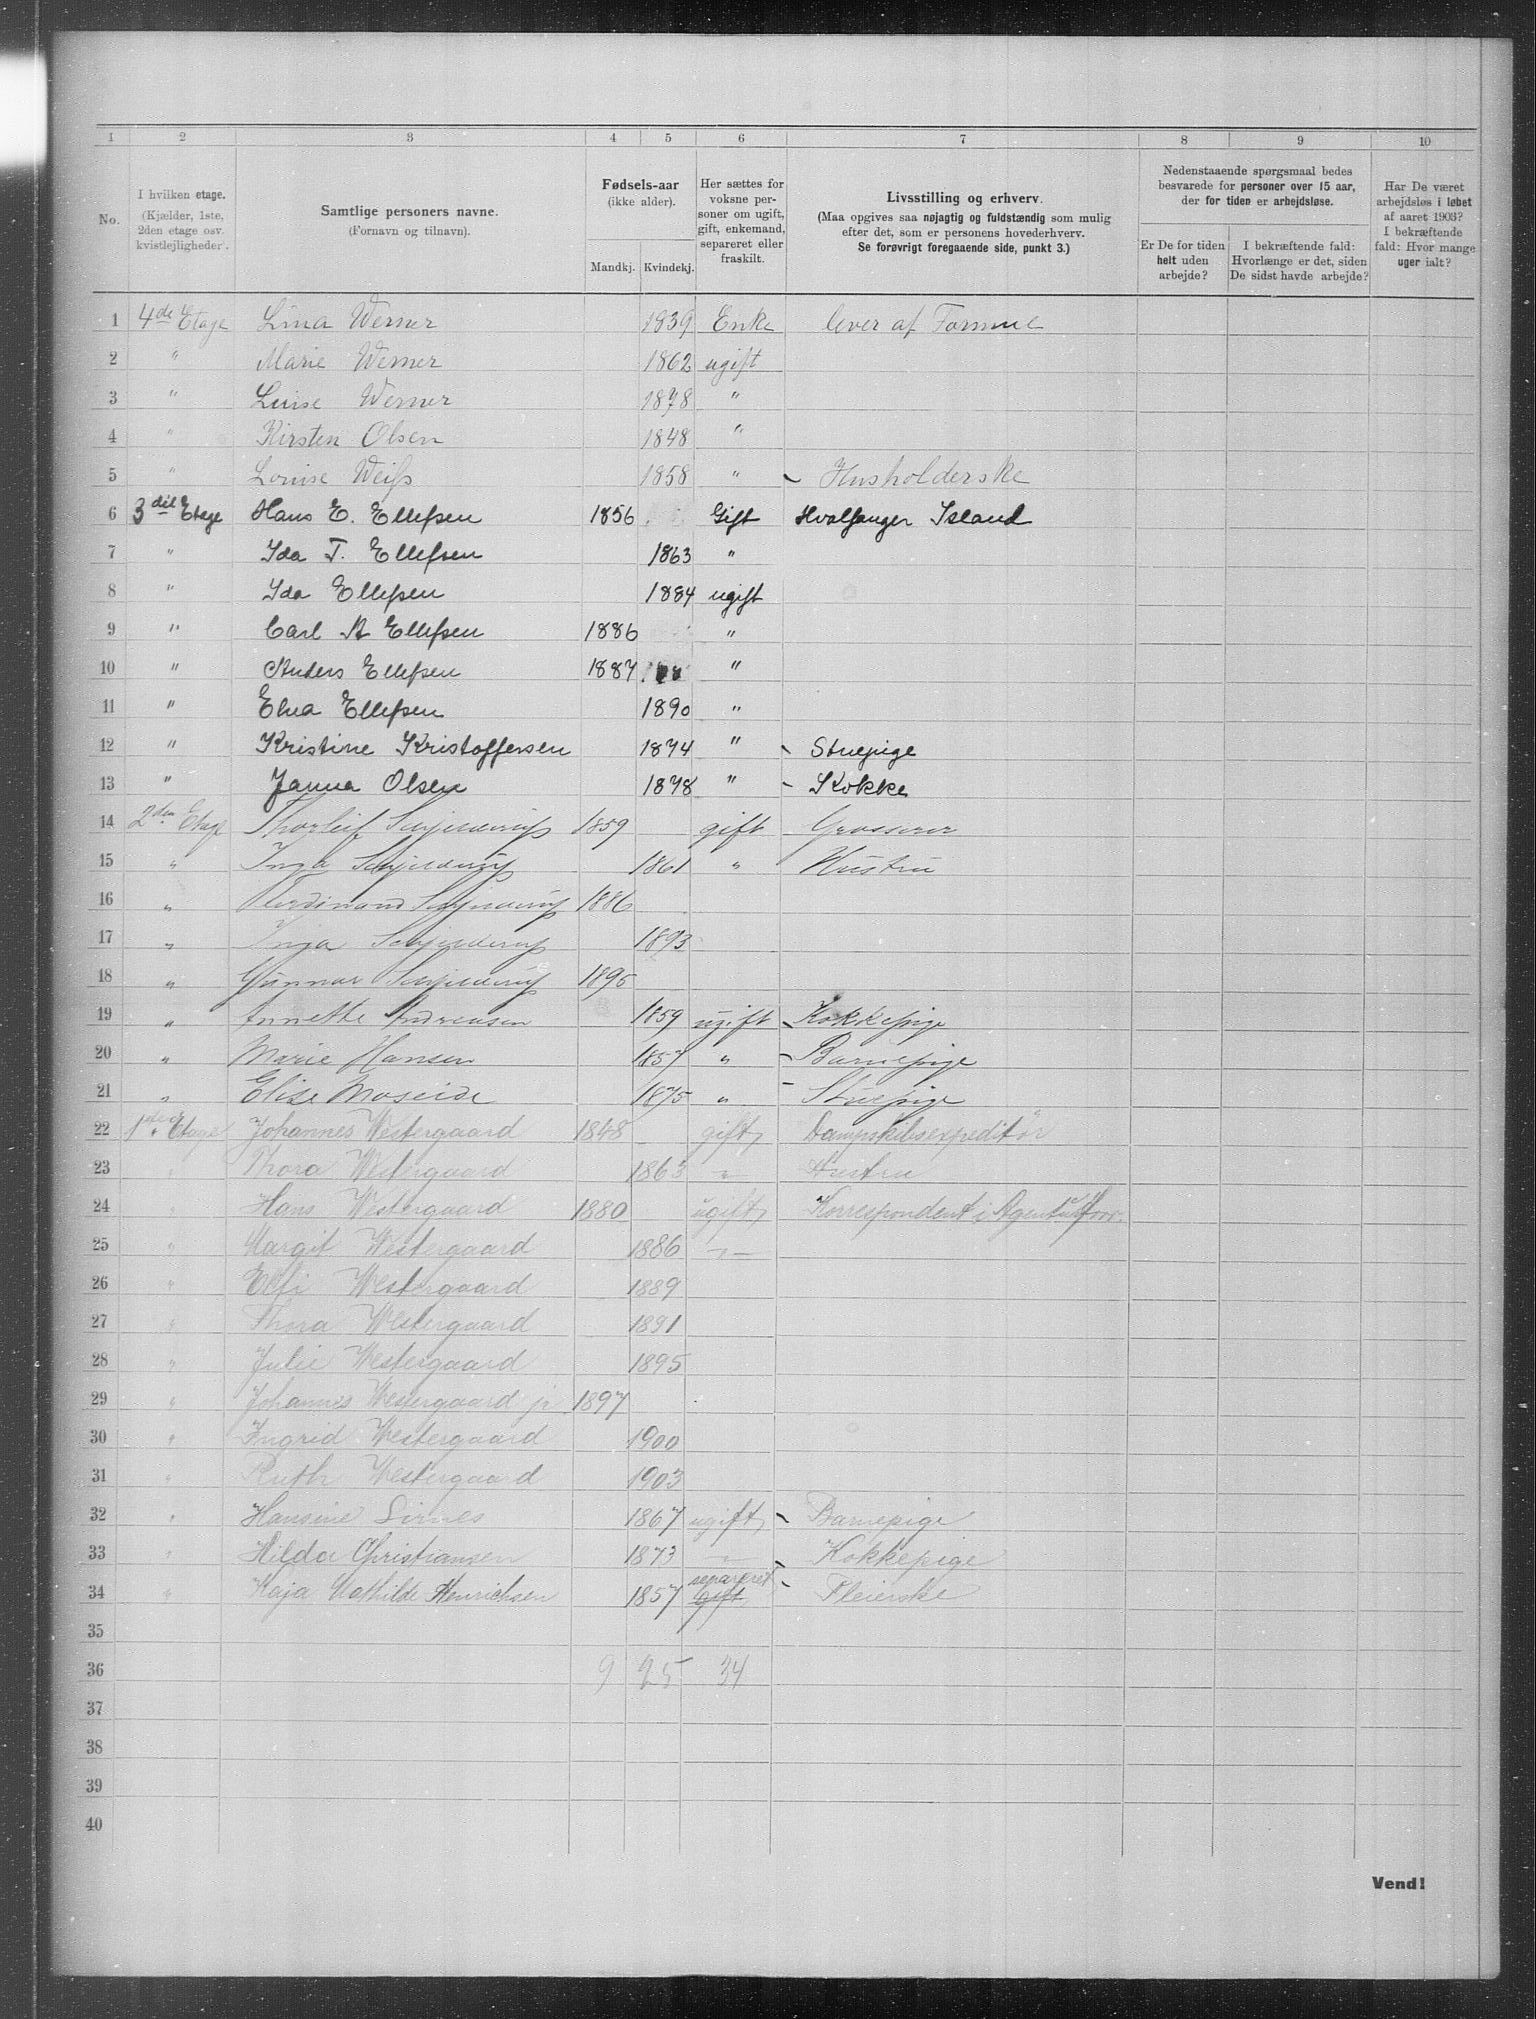 1 2 3 4 5 6 7 8 9 10
No.
I hvilken etage. (Kjælder, 1ste, 2den etage osv. kvistlejligheder).
Samtlige personers navne. (Fornavn og tilnavn).
Fødsels-aar (ikke alder).
Mandkj. Kvindekj.
Her sættes for voksne personer om ugift, gift, enkemand, separeret eller fraskilt.
Livsstilling og erhverv. (Maa opgives saa nøjagtig og fuldstændig som mulig efter det, som er personens hovederhverv. Se forøvrigt foregaaende side, punkt 3.)
Nedenstaaende spørgsmaal bedes besvarede for personer over 15 aar, der for tiden er arbejdsløse.
Er De for tiden helt uden arbejde?
I bekræftende fald: Hvorlænge er det, siden De sidst havde arbejde?
Har De været arbejdsløs i løbet af aaret 1903? I bekræftende fald: Hvor mange uger ialt?
1 4de Etage Lina Werner 1839 Enke lever af Formue
2 " Marie Werner 1862 ugift
3 " Luise Werner 1878 "
4 " Kirsten Olsen 1848 "
5 " Louise Weiss 1858 " - Husholderske
6 3die Etage Hans E. Ellefsen 1856 Gift Hvalfanger Island
7 " Ida T. Ellefsen 1863 "
8 " Ida Ellefsen 1884 ugift
9 " Carl A Ellefsen 1886 "
10 " Anders Ellefsen 1887 "
11 " Elna Ellefsen 1890 "
12 " Kristine Kristoffersen 1874 " - Stuepige
13 " Janna Olsen 1878 " - Kokke
14 2den Etage Thorleif Schjelderup 1859 gift Grosserer
15 " Inga Schjelderup 1861 " Hustru
16 " Ferdinand Schjelderup 1886
17 " Inga Schjelderup 1893
18 " Gunnar Schjelderup 1895
19 " Annette Andreasen 1859 ugift - Kokkepige
20 " Marie Hansen 1857 " - Barnepige
21 " Elise Moseide 1875 " - Stuepige
22 1ste Etage Johannes Westergaard 1848 gift Dampskibsexpeditör
23 " Thora Westergaard 1863 " Hustru
24 " Hans Westergaard 1880 ugift Korrespondent i Agenturforr.
25 " Margit Westergaard 1886 -"-
26 " Elfi Westergaard 1889
27 " Thora Westergaard 1891
28 " Julie Westergaard 1895
29 " Johannes Westergaard jr 1897
30 " Ingrid Westergaard 1900
31 " Ruth Westergaard 1903
32 " Hansine Sirnes 1867 ugift - Barnepige
33 " Hilda Christiansen 1873 -"- - Kokkepige
34 " Kaja Mathilde Henrichsen 1857 separeret Gift - Pleierske
35
36 9 25 34
37
38
39
40
Vend!